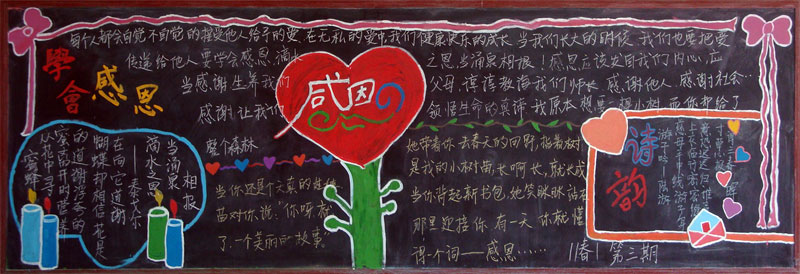 學會
感恩
每个人都会自觉不自觉的接受他人给予的爱,在无私的爱中,我们健康快乐的成长,当我们长大的时候,我们也要把爱
传递给他人,要学会感恩,滴水
之恩,当涌泉相报!感恩应该发自我们内心,应
当感谢生养我们
父母,谆谆教诲我们师长,感谢他人,感谢社会…
感谢让我们
领悟生命的真谛,我原本想要一棵小树,而你却给了
整个森林
感恩
她带着你去春天的田野,指着树
是我的小树苗,长啊长,就长成
当你还是个天真的
当你背起新书包,她笑眯眯站在
苗对你说:"你呀
那里迎接你,有一天,你就懂
了一个美丽的"故事"
得一个词——感恩……
当涌泉相报
滴水之恩
在向它道谢
蝴蝶却相信花是
的道谢
蜜
从花中
蜜蜂
诗韵
寸草心
慈母手中线,游子身
游子吟
(春)第三期